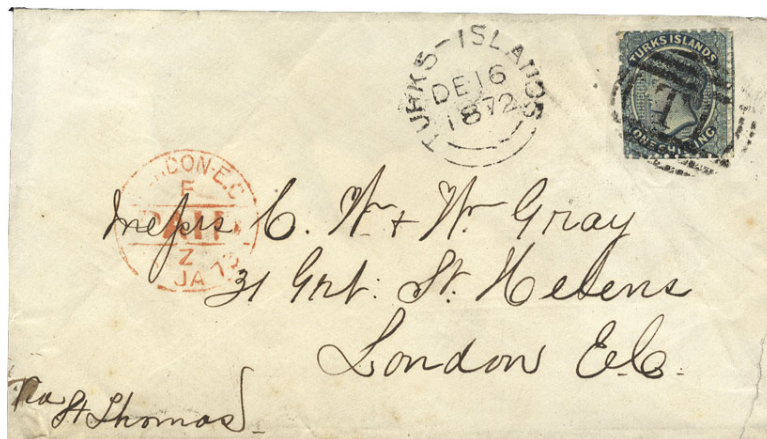 TURKS-ISLANDS
DE 16
1872
TURKS ISLANDS
ONE SHILLING
LONDON·E.C
F
PAID
Z
JA 73
Messrs C. W. & W. Gray
31 Grt: St. Helens
London E.C.
Via
St Thomas